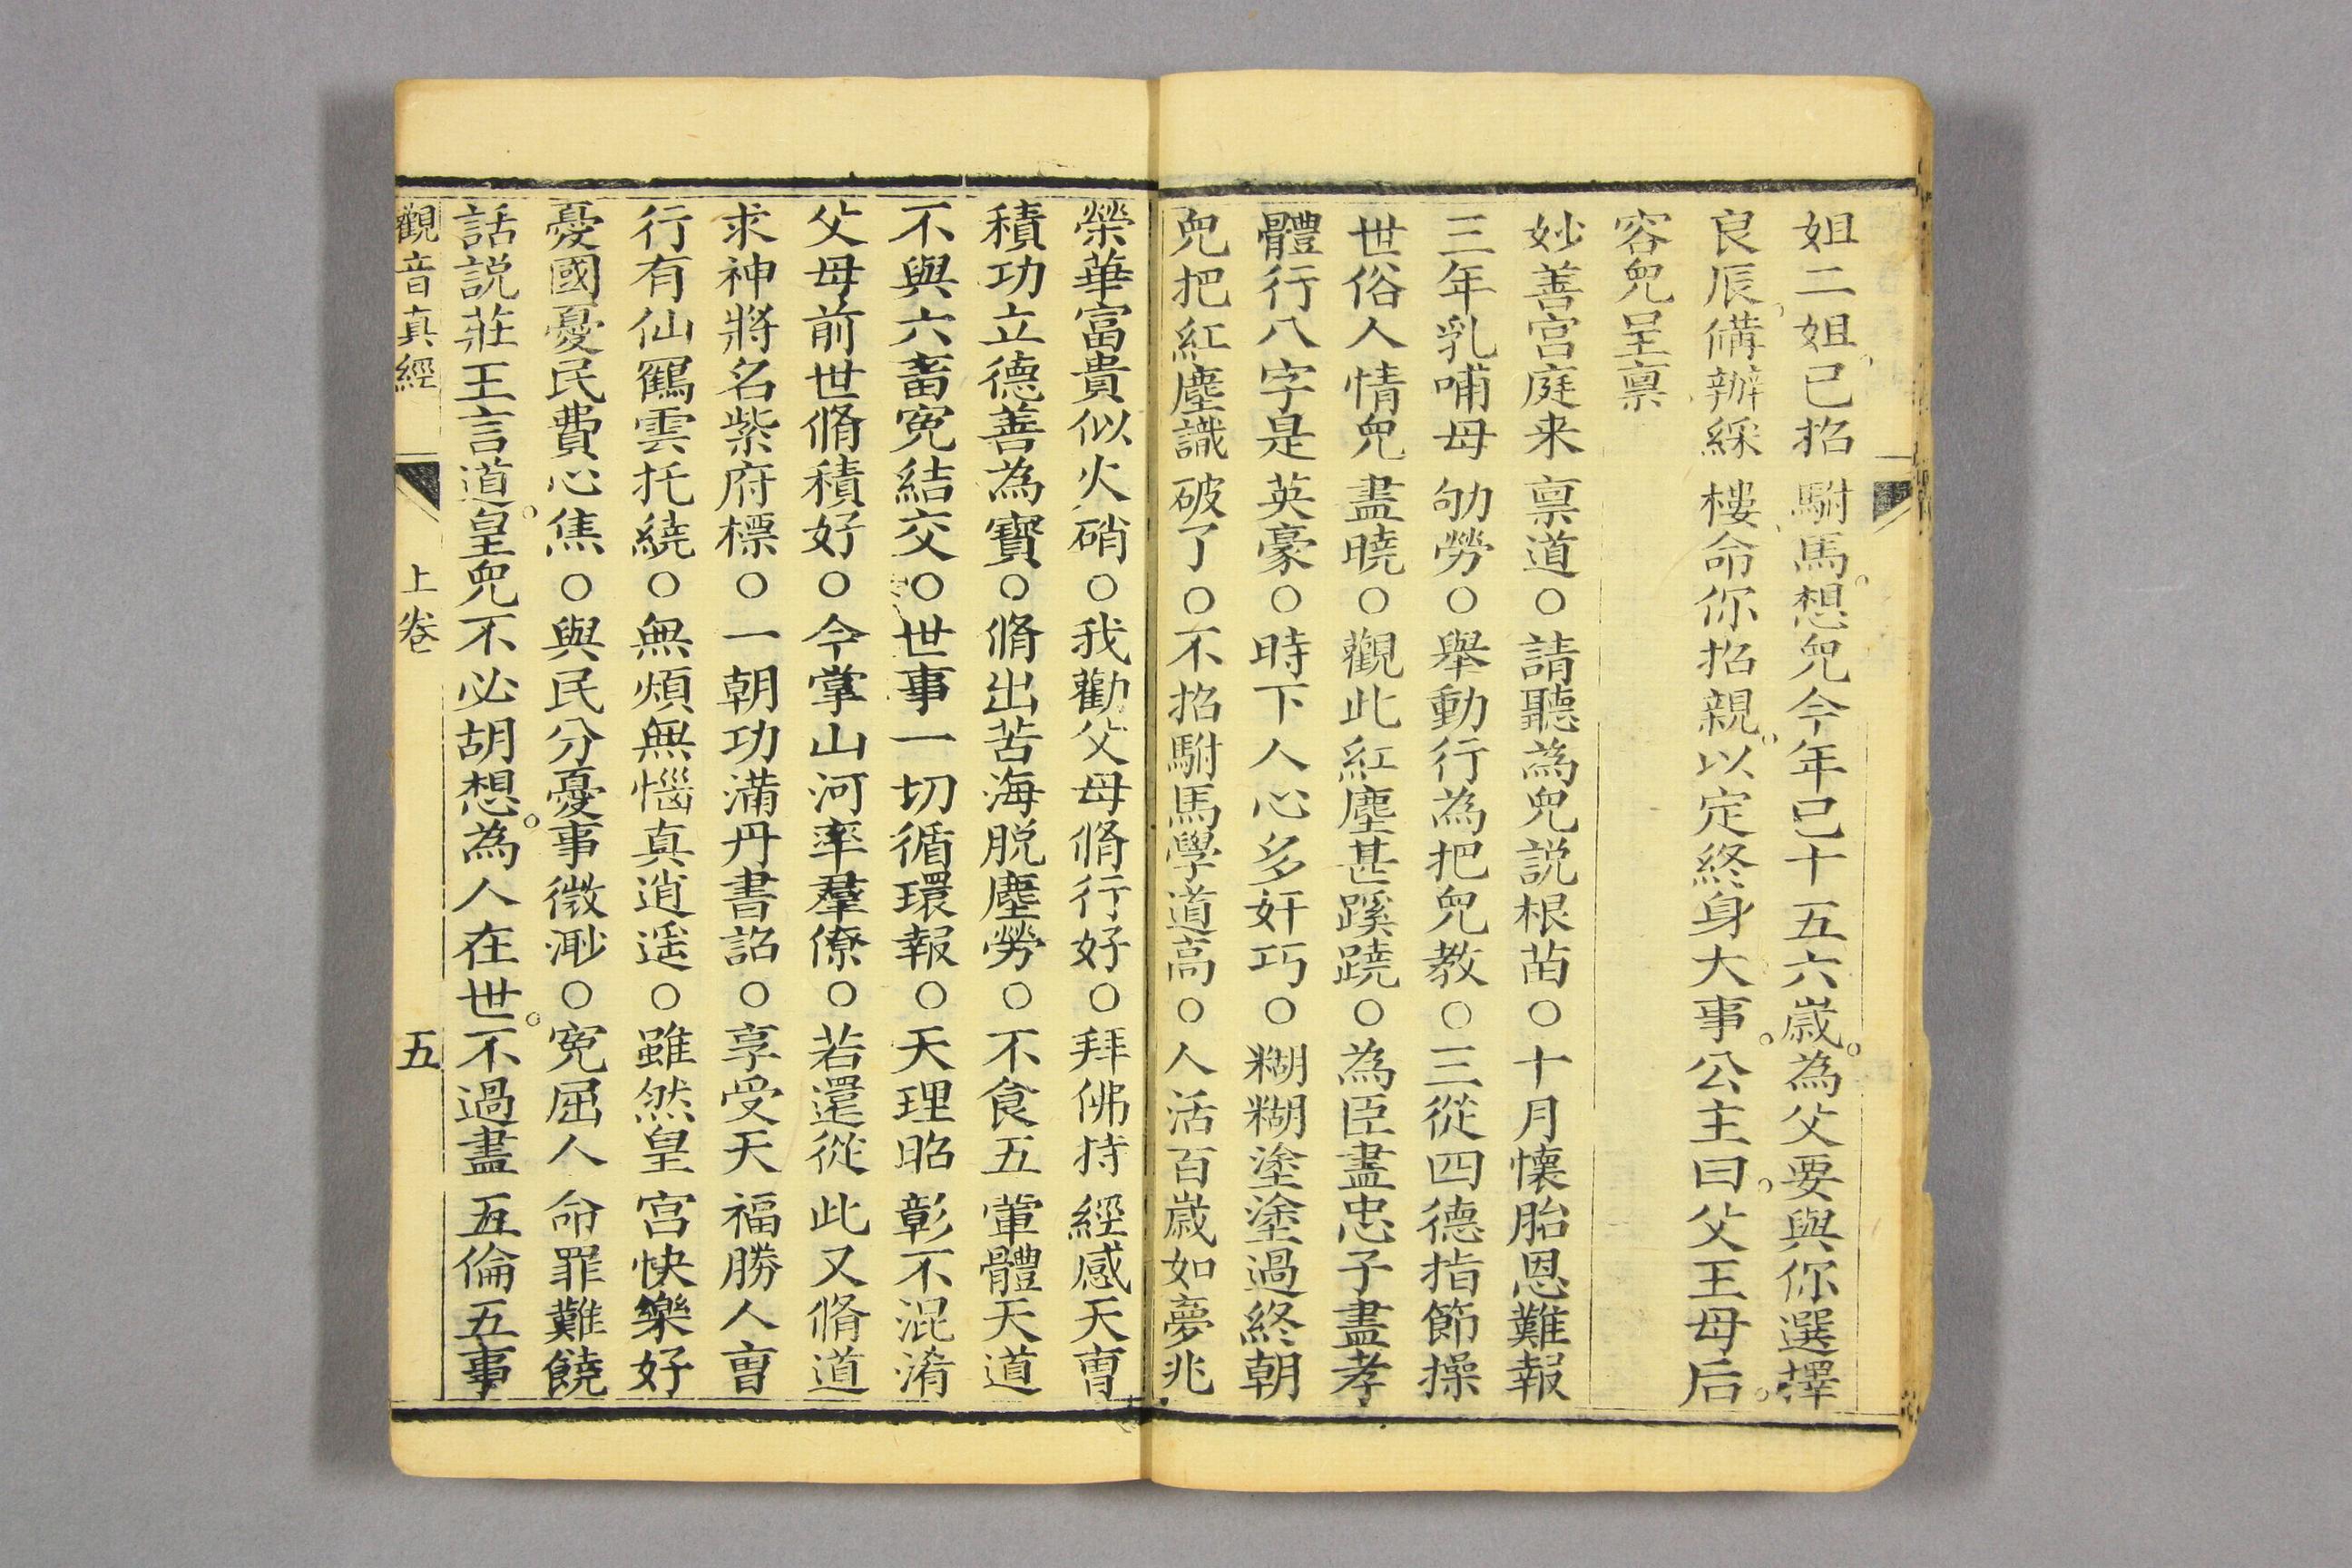 姐二姐已招駙馬。想兒今年已十五六歲。為父要與你選擇
良辰。備辦綵樓、命你招親。以定終身大事。公主曰。父王母后。
容兒呈稟
妙善宮庭来稟道○請聽為兒説根苗○十月懷胎恩難報
三年乳哺母劬勞○舉動行為把兒教○三從四德指節操
世俗人情兒盡曉○觀此紅塵甚蹊蹺○為臣盡忠子盡孝
體行八字是英豪○時下人心多奸巧○糊糊塗塗過終朝
兒把紅塵識破了○不招駙馬學道高○人活百歲如夢兆
榮華富貴似火硝○我勸父母脩行好○拜佛持經感天曹
積功立德善為寳○脩出苦海脱塵勞○不食五葷體天道
不與六畜寃結交○世事一切循環報○天理昭彰不混淆
父母前世脩積好○今掌山河率羣僚○若還從此又脩道
求神將名紫府標○一朝功滿丹書詔○享受天福勝人曹
行有仙鶴雲托繞○無煩無惱真逍遥○雖然皇宮快樂好
憂國憂民費心焦○與民分憂事微渺○寃屈人命罪難饒
話説莊王言道。皇兒不必胡想。為人在世。不過盡五倫五事
觀音真經 上卷 五